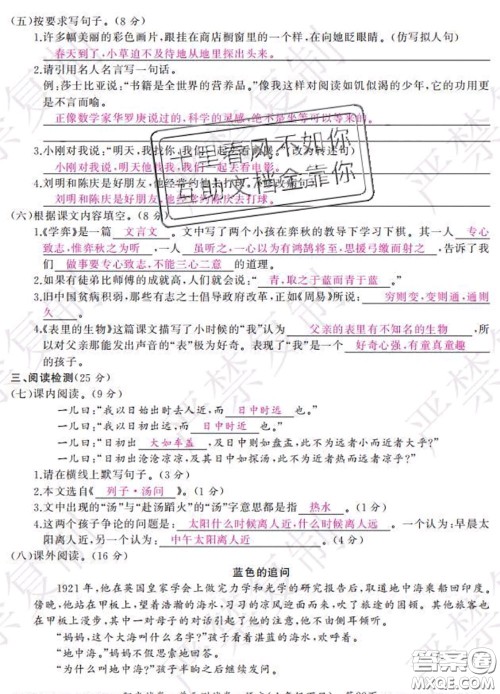 (五)按要求写句子。(8分)
1.许多幅美丽的彩色画片,跟挂在商店橱窗里的一个样,在向她眨眼睛。(仿写拟人句)
春天到了,小草迫不及待地从地里探出头来。
2.请引用名人名言写一句话。
例:莎士比亚说:“书籍是全世界的营养品。”像我这样对阅读如饥似渴的少年,它的功用更
不言而喻。
正像数学家华罗庚说过的,科学的灵感,绝不是坐等可以等来的。
3.小刚对我说:“明天,我
小刚对我说,明天他
4.刘明和陈庆是好朋友,
刘明和陈庆是好朋友,他
千里春风不如你
互助文档全靠你
(六)根据课文内容填空。(8分)
1.《学弈》是一篇 文言文 。文中写了两个小孩在弈秋的教导下学习下棋。其一人 专心
致志,惟弈秋之为听 ,一人 虽听之,一心以为有鸿鹄将至,思援弓缴而射之 ,告诉了我
们 做事要专心致志,不能三心二意 的道理。
2.如果有徒弟比师傅的成就高,人们就会说:“ 青,取之于蓝而青于蓝 。”
3.旧中国贫病积弱,那些有志之士倡导政府改革,正如《周易》所说: 穷则变,变则通,通则
久 。
4.《表里的生物》这篇课文描写了小时候的“我”认为 父亲的表里有不知名的生物 ,所
以对父亲那能发出声音的“表”极为好奇。表现了“我”是一个 好奇心强,有童真童趣
的孩子。
三、阅读检测(25分)
(七)课内阅读。(9分)
一儿曰:“我以日始出时去人近,而 日中时远 也。”
一儿曰:“我以日初出远,而 日中时近 也。”
一儿曰:“日初出 大如车盖 ,及日中则如盘盂,此不为远者小而近者大乎?”
一儿曰:“日初出沧沧凉凉,及其日中如探汤,此不为近者热而远者凉乎?”
1.请在横线上默写句子。(3分)
2.本文选自《 列子·汤问 》。(1分)
3.文中出现的“汤”与“赴汤蹈火”的“汤”字意思都是指 热水 。(1分)
4.这两个孩子争论的问题是: 太阳什么时候离人近,什么时候离人远 。一个认为:早晨太
阳离人近。另一个认为: 中午太阳离人近 。(4分)
(八)课外阅读。(16分)
蓝色的追问
1921年,他在英国皇家学会上做完力学和光学的研究报告后,取道地中海乘船回印度。
傍晚,他站在甲板上,望着浩瀚的海水,习习的凉风迎面而来,吹了一会儿。其他旅客也在
在甲板上漫步,其中一对母子的对话引起了他的注意,他不由倒耳倾听。
“妈妈,这个大海叫什么名字?”孩子看着湛蓝的海水,动了动。
“地中海。”妈妈不假思索地回答。
“为什么叫地中海?”孩子似乎动之后继续发问。
严禁复制
答案圈
MXQE.COM